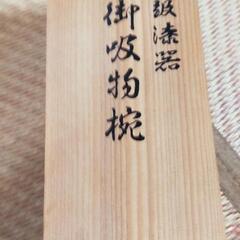 級漆器
御吸物椀